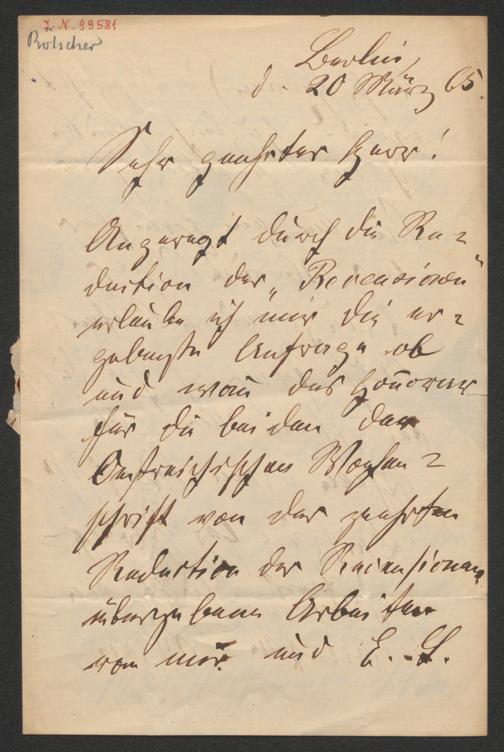 Z. N. 99581
Rötscher
Berlin,
d. 20 März 65.
Sehr geehrter Herr!
Angeregt durch die Re-
daction der „Recensionen“
erlaube ich mir die er-
gebenste Anfrage ob
und wann das Honorar
für die beiden der
Oestreichischen Wochen-
schrift von der geehrten
Redaction der Recensionen
übergebenen Arbeiten
von mir und E. L.